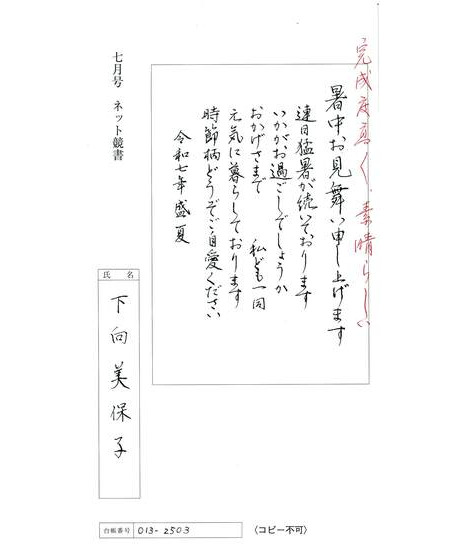 完成度高く、素晴らしい
暑中お見舞い申し上げます
連日猛暑が続いております
いかがお過ごしでしょうか
おかげさまで 私ども一同
元気に暮らしております
時節柄どうぞご自愛ください
令和七年盛夏
七月号 ネット競書
氏名
下向美保子
台帳番号 013-2503
〈コピー不可〉